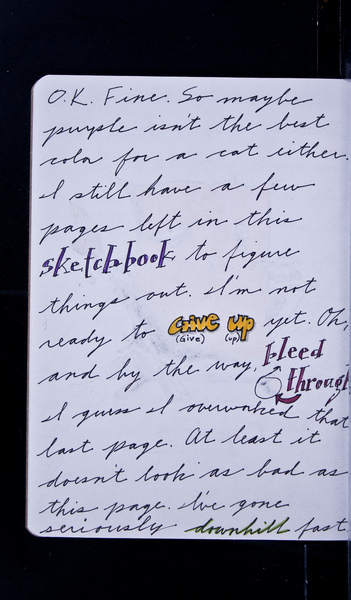 O.K. Fine. So maybe
purple isn't the best
color for a cat either.
I still have a few
pages left in this
sketchbook to figure
things out. I'm not
ready to Give up yet. Oh,
(Give) (up)
and by the way, bleed
through
I guess I overworked that
last page. At least it
doesn't look as bad as
this page. I've gone
seriously downhill fast.